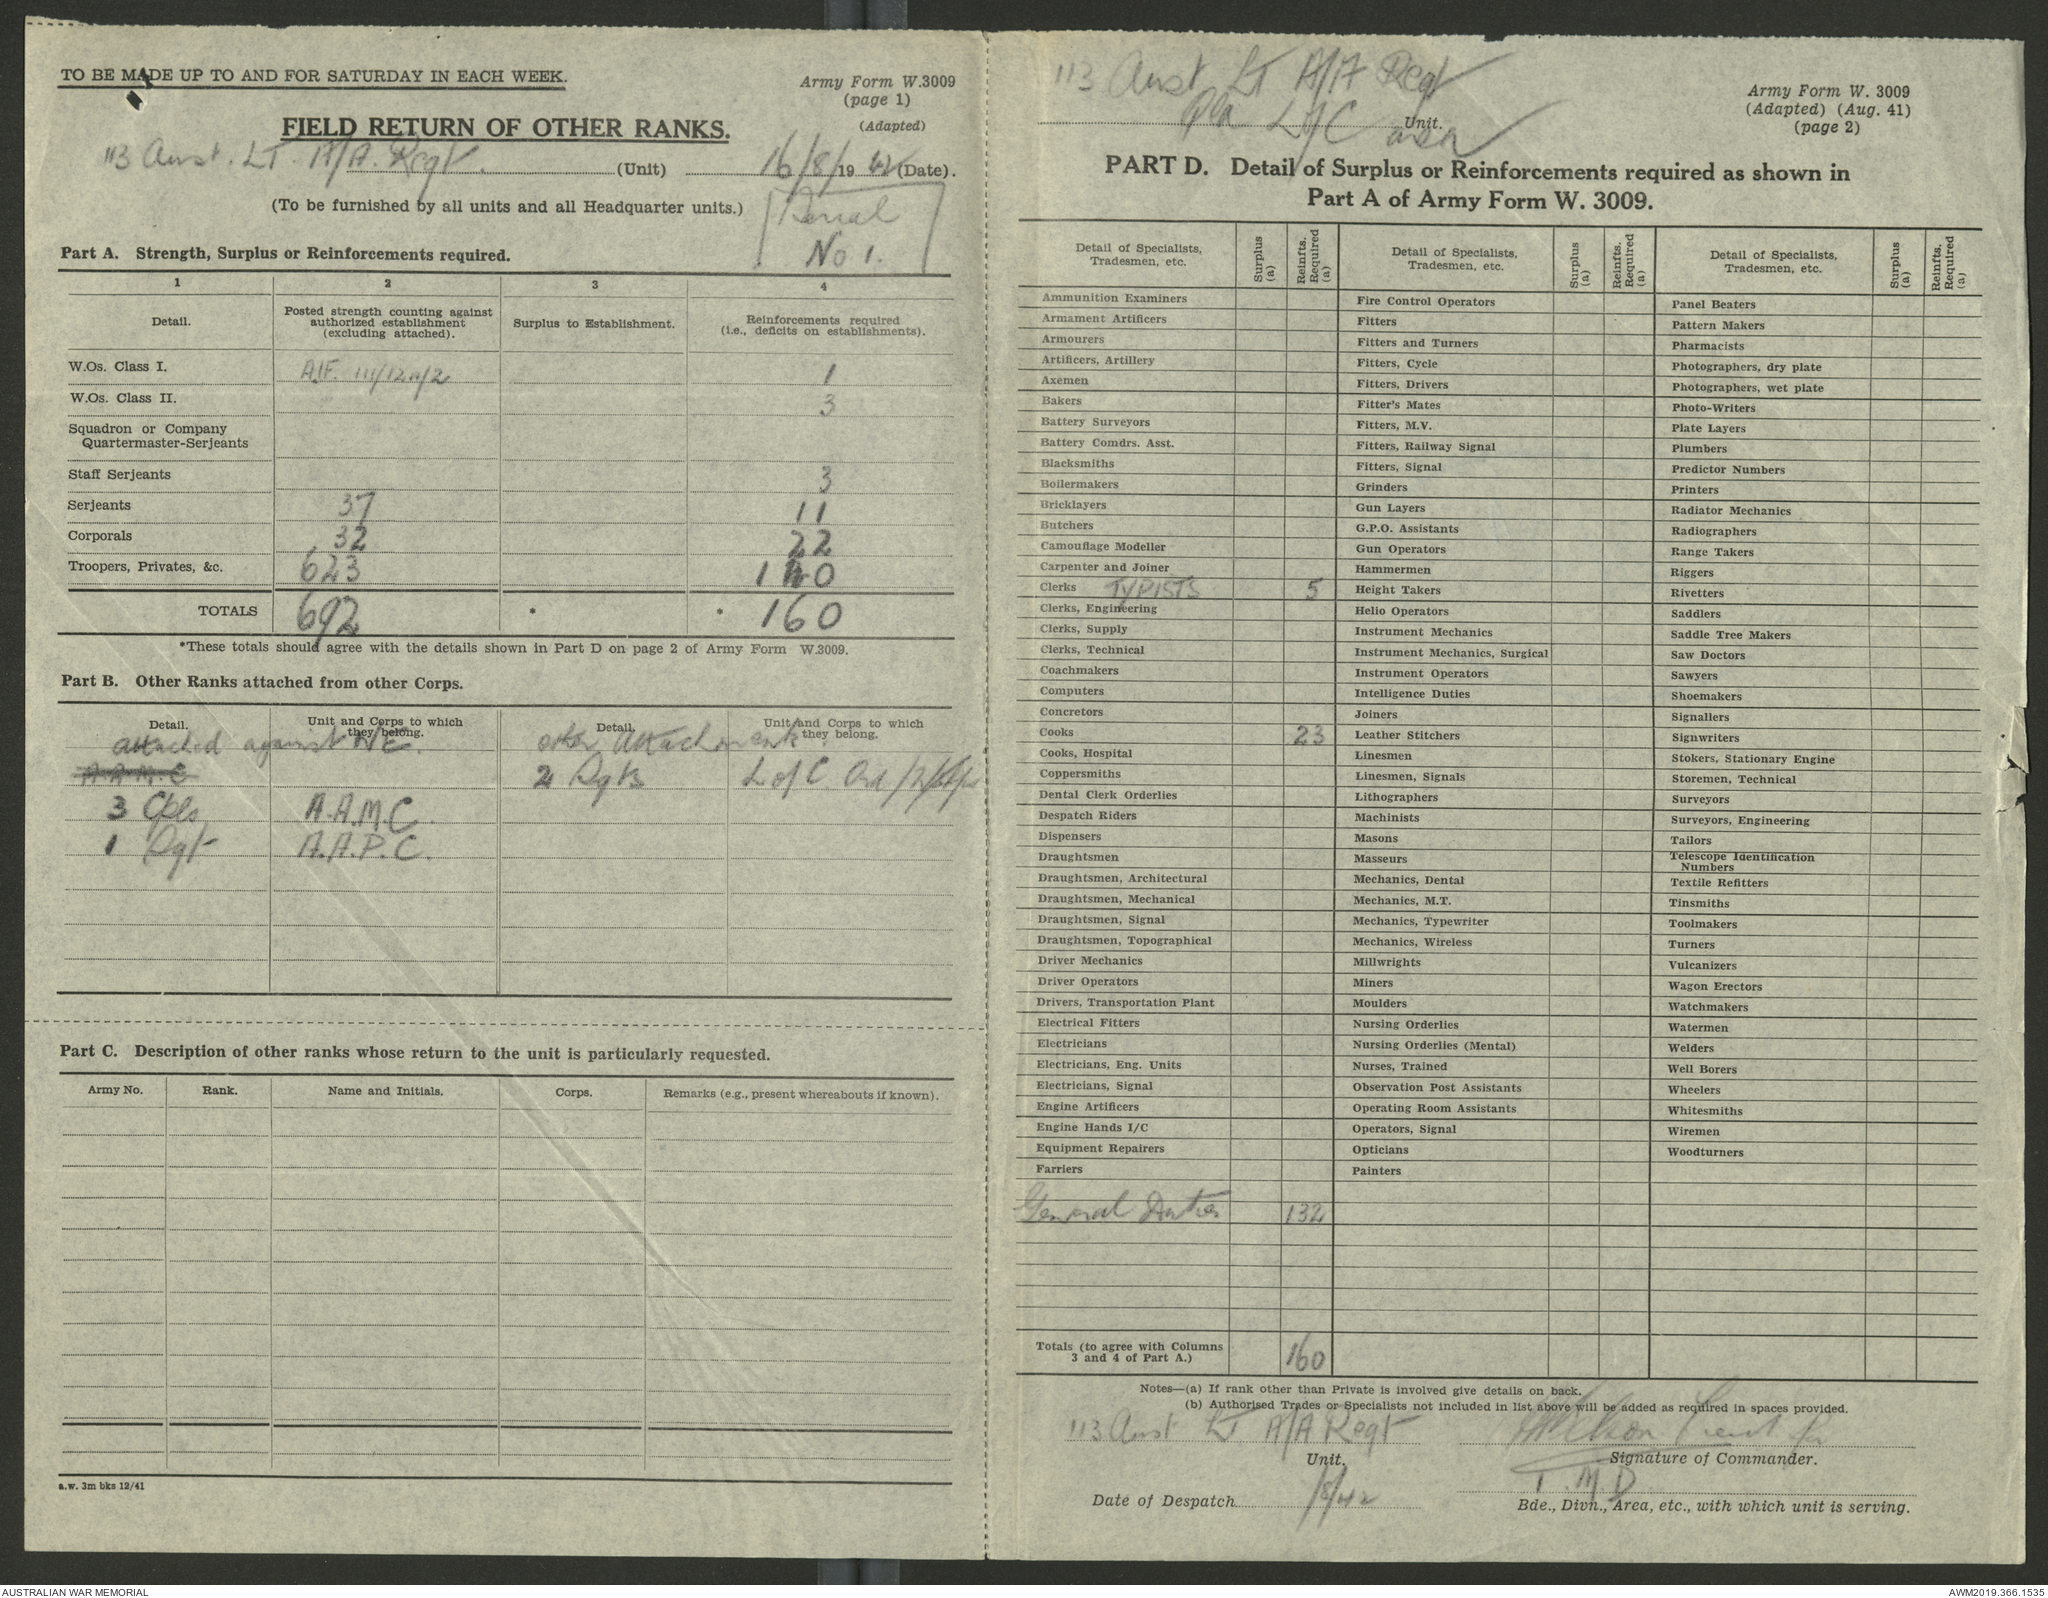 TO BE MADE UP TO AND FOR SATURDAY IN EACH WEEK.
Army Form W.3009
(page 1)
(Adapted)
FIELD RETURN OF OTHER RANKS.
113 Aust. LT. A/A. Regt. (Unit) 16/8/1942 (Date).
(To be furnished by all units and all Headquarter units.)
Serial
No 1.
Part A. Strength, Surplus or Reinforcements required.
1 2 3 4
Detail. Posted strength counting against authorized establishment (excluding attached). Surplus to Establishment. Reinforcements required (i.e., deficits on establishments).
W.Os. Class I. A.I.F. III/12A/2 1
W.Os. Class II. 3
Squadron or Company
Quartermaster-Serjeants
Staff Serjeants 3
Serjeants 37 11
Corporals 32 22
Troopers, Privates, &c. 623 140
TOTALS 692 * * 160
*These totals should agree with the details shown in Part D on page 2 of Army Form W.3009.
Part B. Other Ranks attached from other Corps.
Detail. Unit and Corps to which they belong. Detail. Unit and Corps to which they belong.
attached against WE. other attachments.
A.A.M.C 2 Sgts L of C.
3 Cpls A.A.M.C.
1 Sgt A.A.P.C.
Part C. Description of other ranks whose return to the unit is particularly requested.
Army No. Rank. Name and Initials. Corps. Remarks (e.g., present whereabouts if known).
a.w. 3m bks 12/41
113 Aust Lt A/A Regt
Qld L/C area Unit.
Army Form W. 3009
(Adapted) (Aug. 41)
(page 2)
PART D. Detail of Surplus or Reinforcements required as shown in
Part A of Army Form W. 3009.
Detail of Specialists, Tradesmen, etc. Surplus (a) Reinfts. Required (a) Detail of Specialists, Tradesmen, etc. Surplus (a) Reinfts. Required (a) Detail of Specialists, Tradesmen, etc. Surplus (a) Reinfts. Required (a)
Ammunition Examiners Fire Control Operators Panel Beaters
Armament Artificers Fitters Pattern Makers
Armourers Fitters and Turners Pharmacists
Artificers, Artillery Fitters, Cycle Photographers, dry plate
Axemen Fitters, Drivers Photographers, wet plate
Bakers Fitter's Mates Photo-Writers
Battery Surveyors Fitters, M.V. Plate Layers
Battery Comdrs. Asst. Fitters, Railway Signal Plumbers
Blacksmiths Fitters, Signal Predictor Numbers
Boilermakers Grinders Printers
Bricklayers Gun Layers Radiator Mechanics
Butchers G.P.O. Assistants Radiographers
Camouflage Modeller Gun Operators Range Takers
Carpenter and Joiner Hammermen Riggers
Clerks TYPISTS 5 Height Takers Rivetters
Clerks, Engineering Helio Operators Saddlers
Clerks, Supply Instrument Mechanics Saddle Tree Makers
Clerks, Technical Instrument Mechanics, Surgical Saw Doctors
Coachmakers Instrument Operators Sawyers
Computers Intelligence Duties Shoemakers
Concretors Joiners Signallers
Cooks 23 Leather Stitchers Signwriters
Cooks, Hospital Linesmen Stokers, Stationary Engine
Coppersmiths Linesmen, Signals Storemen, Technical
Dental Clerk Orderlies Lithographers Surveyors
Despatch Riders Machinists Surveyors, Engineering
Dispensers Masons Tailors
Draughtsmen Masseurs Telescope Identification Numbers
Draughtsmen, Architectural Mechanics, Dental Textile Refitters
Draughtsmen, Mechanical Mechanics, M.T. Tinsmiths
Draughtsmen, Signal Mechanics, Typewriter Toolmakers
Draughtsmen, Topographical Mechanics, Wireless Turners
Driver Mechanics Millwrights Vulcanizers
Driver Operators Miners Wagon Erectors
Drivers, Transportation Plant Moulders Watchmakers
Electrical Fitters Nursing Orderlies Watermen
Electricians Nursing Orderlies (Mental) Welders
Electricians, Eng. Units Nurses, Trained Well Borers
Electricians, Signal Observation Post Assistants Wheelers
Engine Artificers Operating Room Assistants Whitesmiths
Engine Hands I/C Operators, Signal Wiremen
Equipment Repairers Opticians Woodturners
Farriers Painters
General Duties 132
Totals (to agree with Columns 3 and 4 of Part A.) 160
Notes—(a) If rank other than Private is involved give details on back.
(b) Authorised Trades or Specialists not included in list above will be added as required in spaces provided.
113 Aust LT A/A Regt
Unit. Signature of Commander.
T.M.D.
Date of Despatch /8/42 Bde., Divn., Area, etc., with which unit is serving.
AUSTRALIAN WAR MEMORIAL AWM2019.366.1535